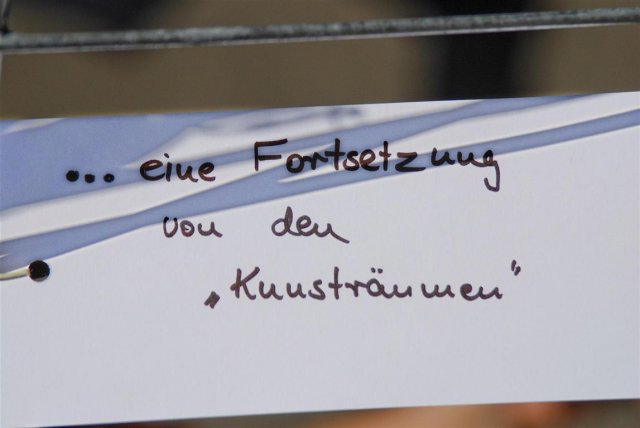 ... eine Fortsetzung
von den
„Kunsträumen"